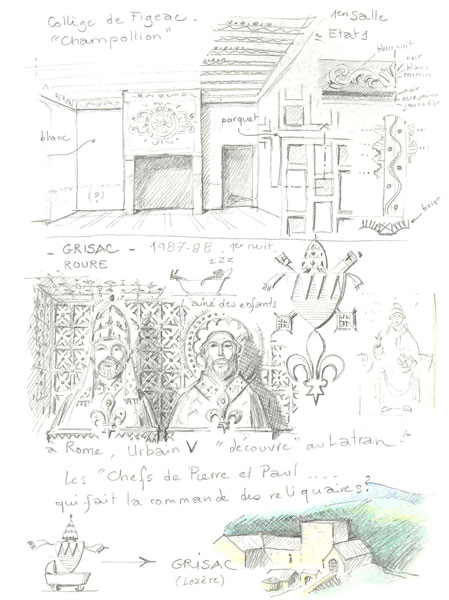 Collège de Figeac
"Champollion"
1ère Salle
Etat 1
bleu nuit
noir
blanc
carmin
noir
ocre jaune
blanc
parquet
(?)
brique
- GRISAC - 1987-88 1ère nuit
ROURE
zzz
L'aîné des enfants
à Rome, Urbain V "découvre" au Latran
Les "Chefs de Pierre et Paul ....
qui fait la commande des reliquaires?
GRISAC
(Lozère)